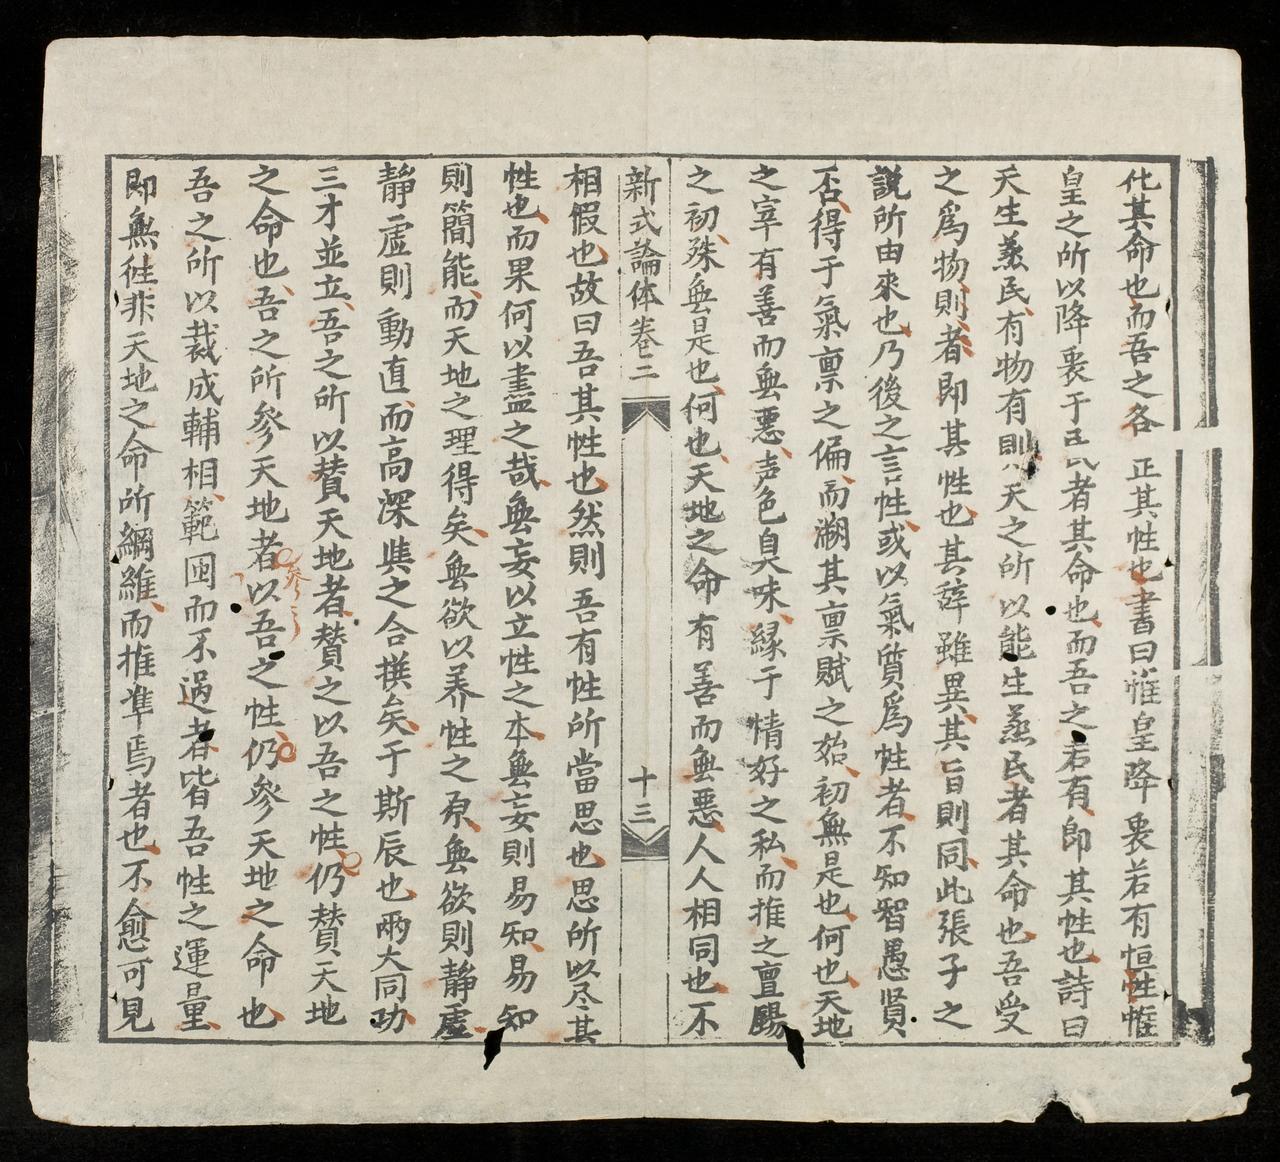 化其命也而吾之各正其性也書曰惟皇降衷若有恒性惟
皇之所以降衷于民者其命也而吾之若有即其性也詩曰
天生蒸民有物有則天之所以能生蒸民者其命也吾受
之爲物則者即其性也其辞雖異其旨則同此張子之
說所由來也乃後之言性或以氣質爲性者不知智愚賢
否得于氣禀之偏而溯其禀賦之始初無是也何也天地
之宰有善而無悪声色臭味縁于情好之私而推之亶賜
之初殊無是也何也天地之命有善而無悪人人相同也不
新式論体卷二
十三
相假也故曰吾其性也然則吾有性所當思也思所以尽其
性也而果何以盡之哉無妄以立性之本無妄則易知易知
則簡能而天地之理得矣無欲以养性之原無欲則静虛
靜虛則動直而高深與之合撰矣于斯辰也兩大同功
三才並立吾之所以賛天地者賛之以吾之性仍賛天地
之命也吾之所參天地者以吾之性仍參天地之命也
參之
吾之所以裁成輔相範囯而不過者皆吾性之運量
即無徃非天地之命所綱維而推準焉者也不愈可見